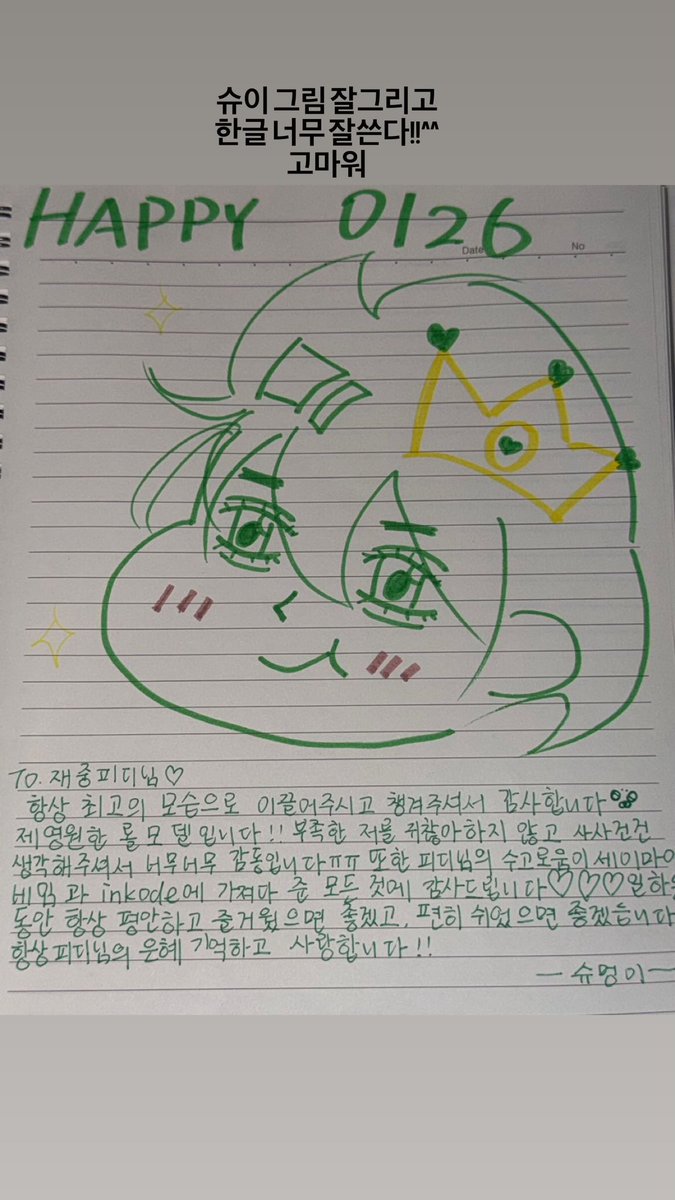 슈이 그림 잘그리고
한글 너무 잘쓴다!!^^
고마워
HAPPY 0126
Date No
TO. 재중피디님♡
항상 최고의 모습으로 이끌어주시고 챙겨주셔서 감사합니다
제 영원한 롤모델입니다!! 부족한 저를 귀찮아하지 않고 사사건건
생각해주셔서 너무너무 감동입니다ㅠㅠ 또한 피디님의 수고로움이 세이마이
네임 과 inkode에 가져다 준 모든 것에 감사드립니다♡♡♡일하는
동안 항상 평안하고 즐거웠으면 좋겠고, 편히 쉬었으면 좋겠습니다
항상피디님의 은혜 기억하고 사랑합니다!!
— 슈멍이 —